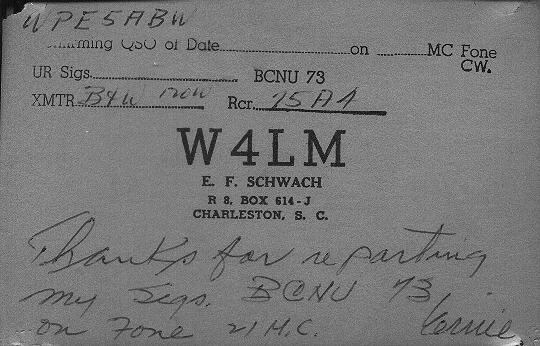 WPE5ABW
Confirming QSO of Date on MC Fone
CW.
UR Sigs. BCNU 73
XMTR B4W 120W Rcr. 75A4
W4LM
E. F. SCHWACH
R 8, BOX 614-J
CHARLESTON, S. C.
Thanks for reporting
my Sigs. BCNU 73
on Fone 21 M.C. Ernie